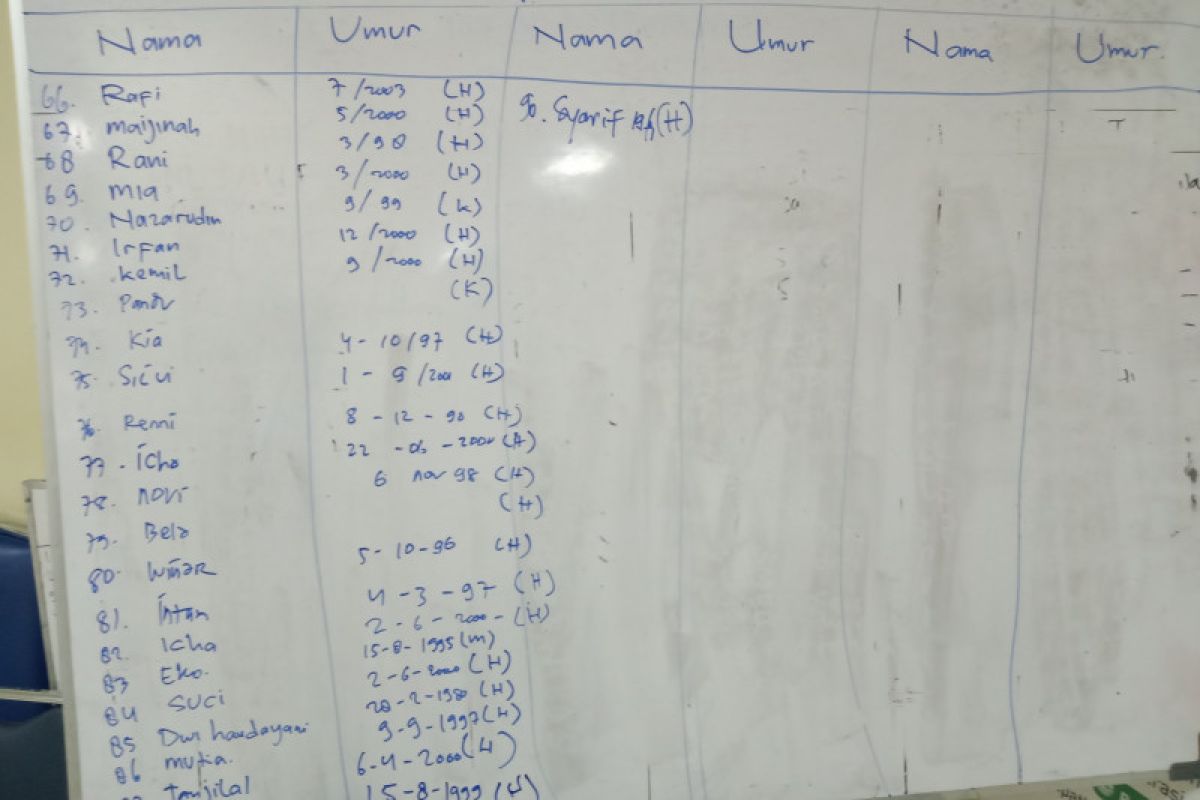 Nama Umur Nama Umur Nama Umur
66. Rafi 7/2003 (H)
67. maijinah 5/2000 (H) 90. Syarif (H)
68 Rani 3/98 (H)
69. mia 3/2000 (H)
70. Nazarudin 9/99 (K)
71. Irfan 12/2000 (H)
72. kemil 9/2000 (H)
73. (K)
74. Kia 4-10/97 (H)
75. 1-9/2001 (H)
76. Remi 8-12-90 (H)
77. Icha 22
78. novi 6 nov 98 (H)
79. Bela (H)
80. 5-10-96 (H)
81. Intan 4-3-97 (H)
82. Icha 2-6-2000-(H)
83 Eko. 15-8-1995(m)
84 SUCI 2-6-2000 (H)
85 Dwi handayani 20-2-1980 (H)
86 mutia. 9-9-1997(H)
Tanjilal 6-4-2000(H)
15-8-1999 (H)